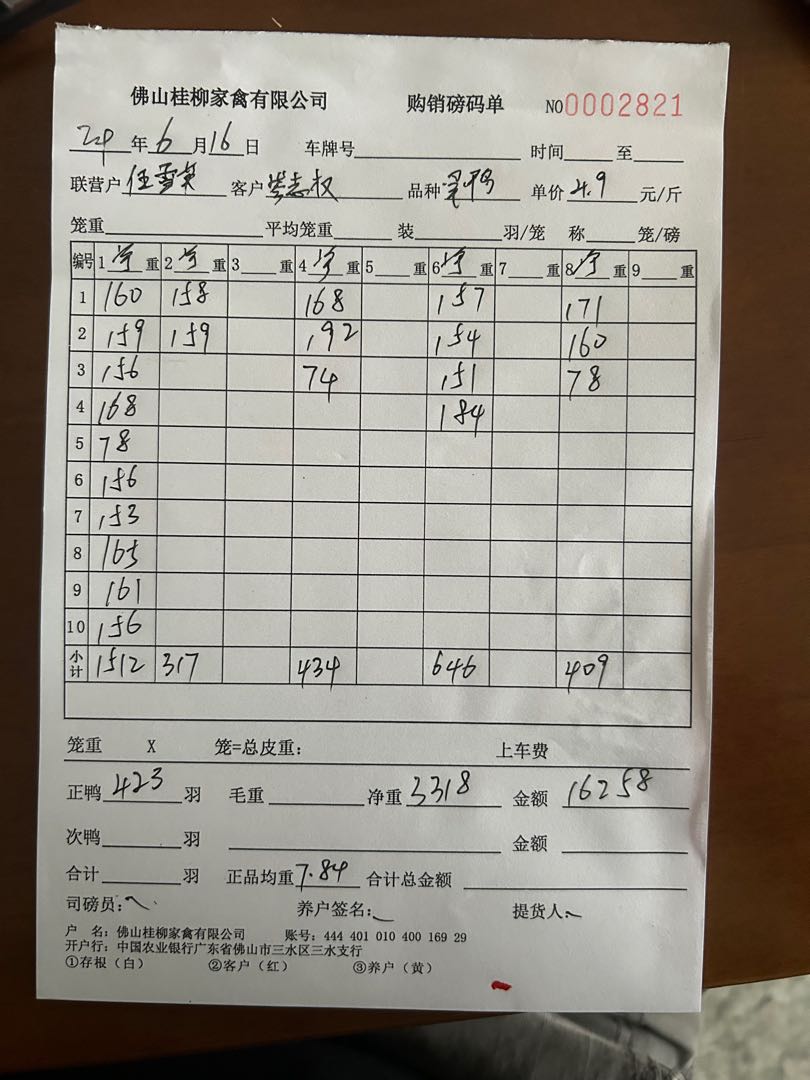 佛山桂柳家禽有限公司 购销磅码单 NO0002821
24年6月16日 车牌号 时间 至
联营户 任雪英 客户 岑志权 品种 单价 4.9 元/斤
笼重 平均笼重 装 羽/笼 称 笼/磅
编号 1 重 2 重 3 重 4 重 5 重 6 重 7 重 8 重 9 重
1 160 158 168 157 171
2 159 159 192 154 160
3 156 74 151 78
4 168 184
5 78
6 156
7 153
8 165
9 161
10 156
小计 1512 317 434 646 409
笼重 X 笼=总皮重: 上车费
正鸭 423 羽 毛重 净重 3318 金额 16258
次鸭 羽 金额
合计 羽 正品均重 7.84 合计总金额
司磅员: 养户签名: 提货人:
户 名: 佛山桂柳家禽有限公司 账号: 444 401 010 400 169 29
开户行: 中国农业银行广东省佛山市三水区三水支行
①存根（白） ②客户（红） ③养户（黄）